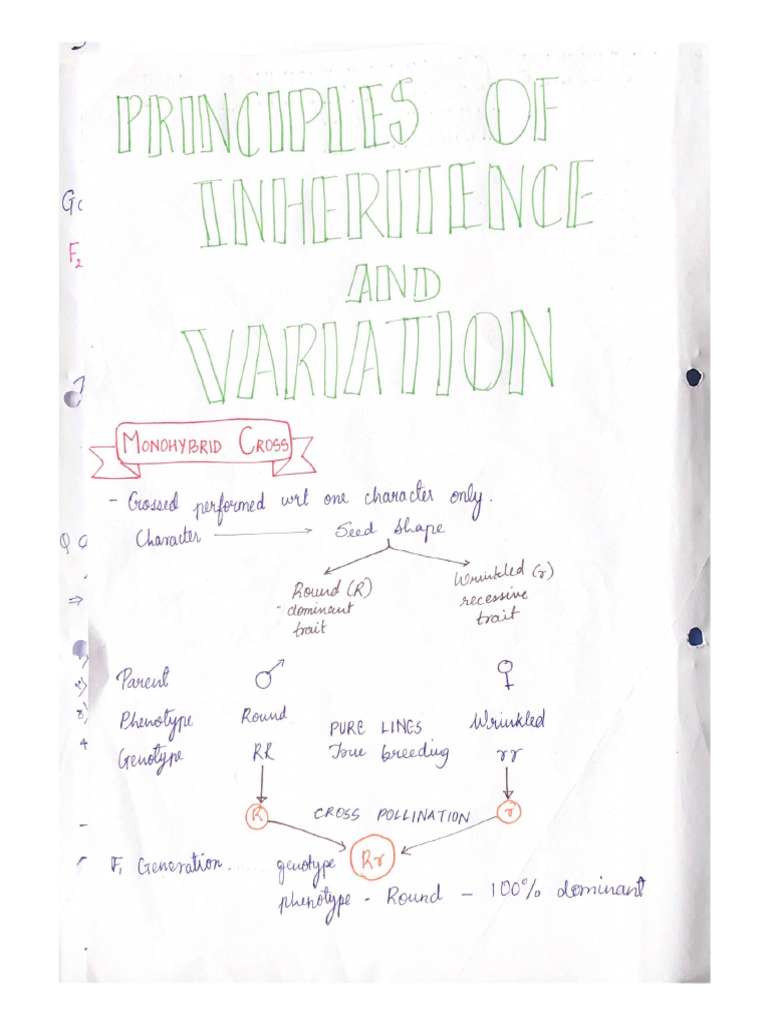 PRINCIPLES OF
INHERITENCE
AND
VARIATION
MONOHYBRID CROSS
- Crossed performed wrt one character only.
Character → Seed shape
Round (R) Wrinkled (r)
- dominant recessive
trait trait
Parent ♂ ♀
Phenotype Round PURE LINGS Wrinkled
Genotype RR True breeding rr
R CROSS POLLINATION r
F₁ Generation..... genotype Rr
phenotype - Round - 100% dominant
G
F₂
Q
⇒
4